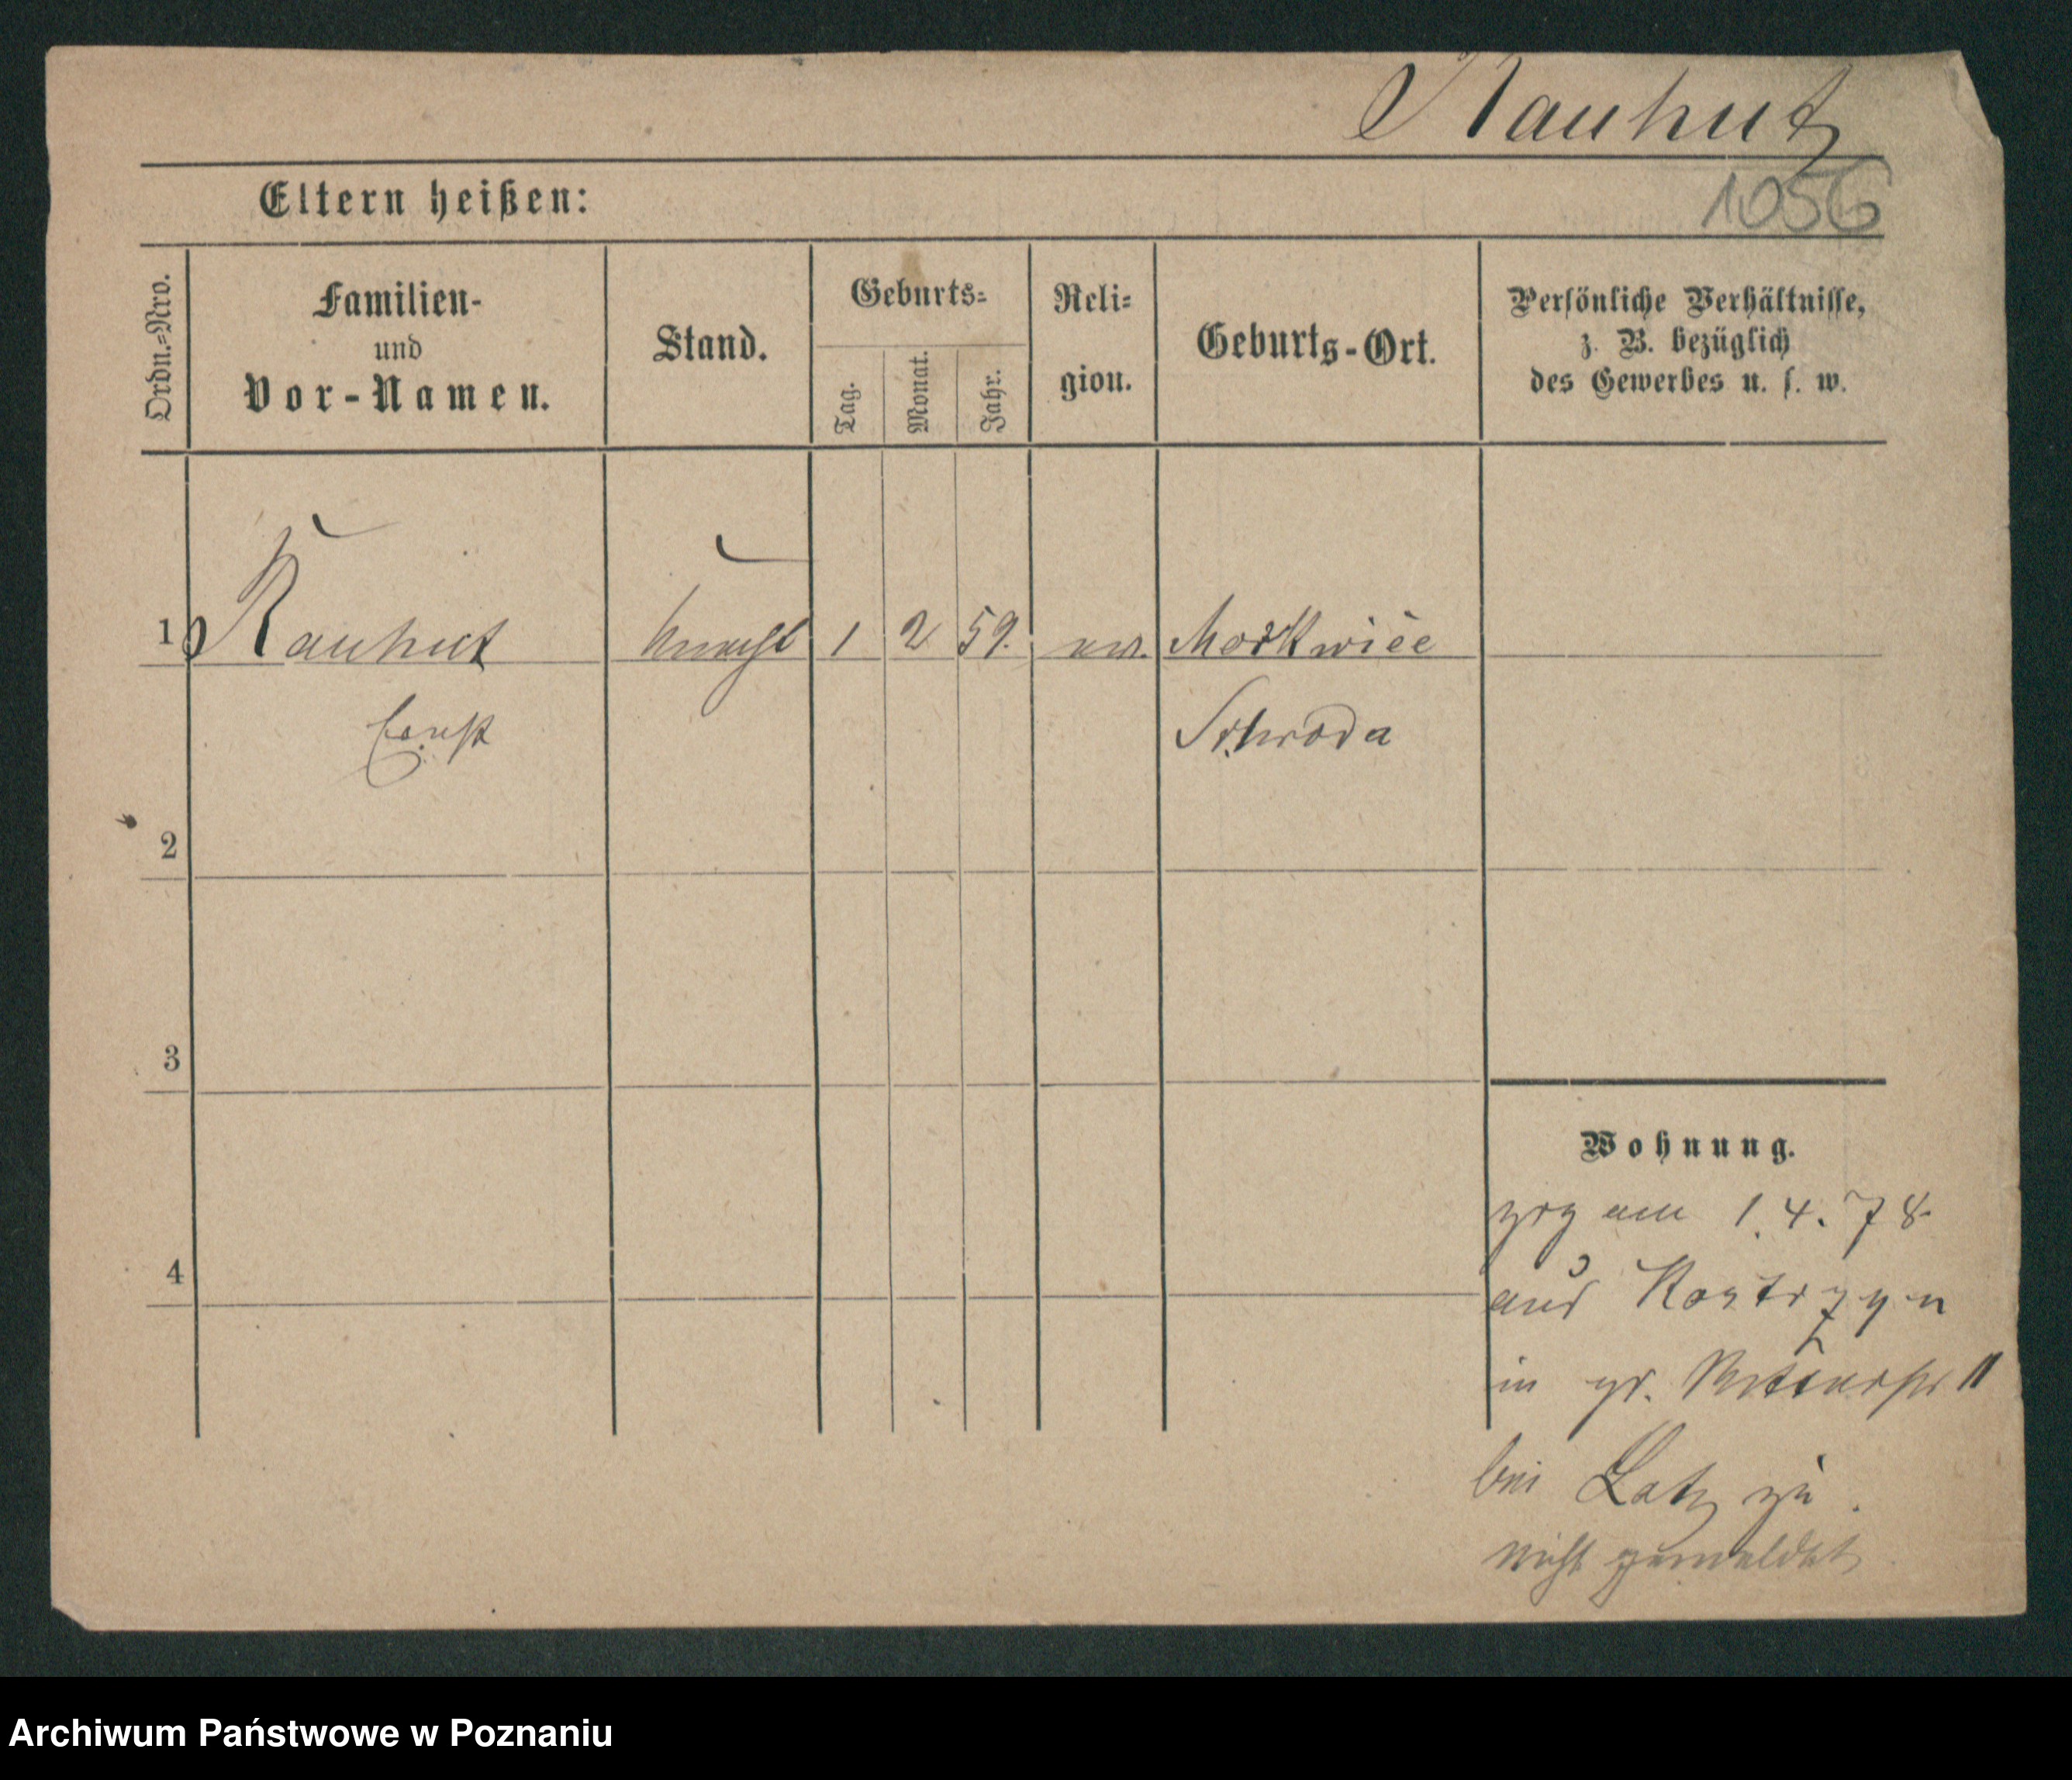 Rauhut
1056
Eltern heißen:
Ordn.=Nro.
Familien-
und
Vor-Namen.
Stand.
Geburts=
Tag.
Monat.
Jahr.
Reli=
gion.
Geburts-Ort.
Persönliche Verhältnisse,
z. B. bezüglich
des Gewerbes u. s. w.
1 Rauhut Knecht 1 2 59. ev.
Ernst Schroda
2
3
Wohnung.
zog am 1.4.78
4
aus Kostrzyn
in gr. 11
bei Latz zu.
nicht gemeldet
Archiwum Państwowe w Poznaniu